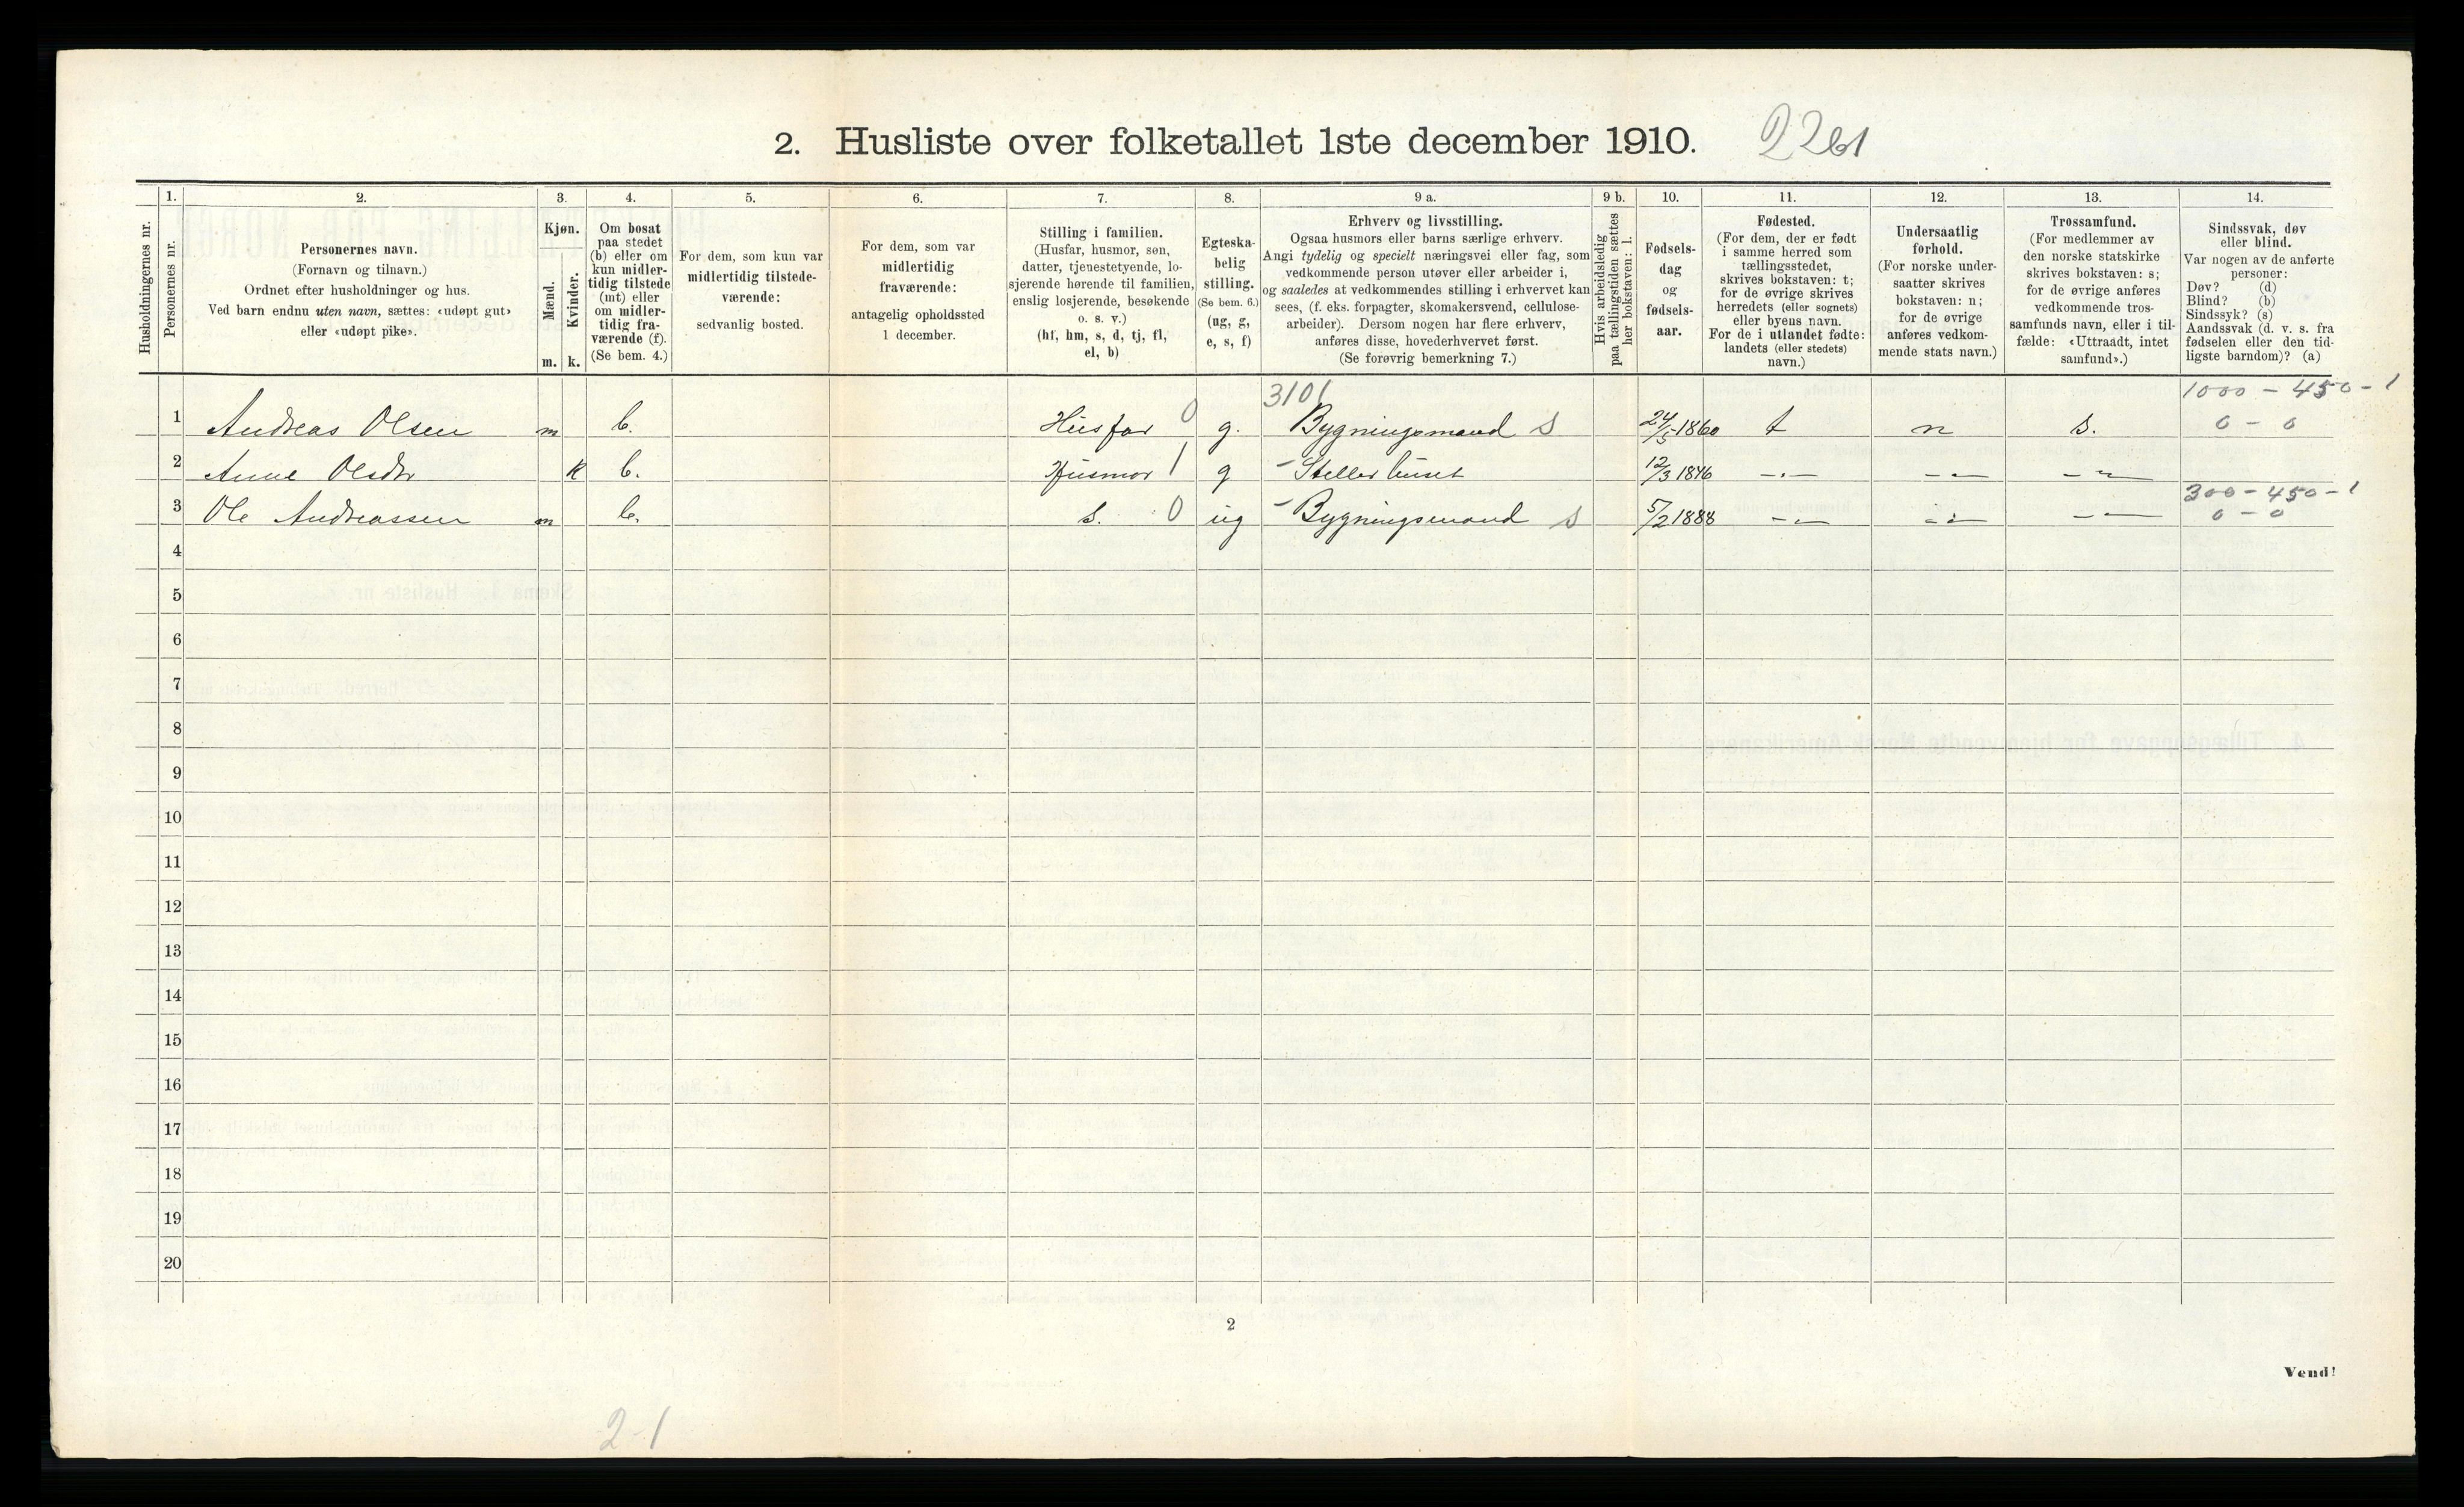 2. Husliste over folketallet 1ste december 1910. 2261
Husholdningernes nr.
1.
Personernes nr.
2.
Personernes navn.
(Fornavn og tilnavn.)
Ordnet efter husholdninger og hus.
Ved barn endnu uten navn, sættes: «udøpt gut»
eller «udøpt pike».
3.
Kjøn.
Mænd.
m.
Kvinder.
k.
4.
Om bosat
paa stedet
(b) eller om
kun midler-
tidig tilstede
(mt) eller
om midler-
tidig fra-
værende (f).
(Se bem. 4.)
5.
For dem, som kun var
midlertidig tilstede-
værende:
sedvanlig bosted.
6.
For dem, som var
midlertidig
fraværende:
antagelig opholdssted
1 december.
7.
Stilling i familien.
(Husfar, husmor, søn,
datter, tjenestetyende, lo-
sjerende hørende til familien,
enslig losjerende, besøkende
o. s. v.)
(hf, hm, s, d, tj, fl,
el, b)
8.
Egteska-
belig
stilling.
(Se bem. 6.)
(ug, g,
e, s, f)
9 a.
Erhverv og livsstilling.
Ogsaa husmors eller barns særlige erhverv.
Angi tydelig og specielt næringsvei eller fag, som
vedkommende person utøver eller arbeider i,
og saaledes at vedkommendes stilling i erhvervet kan
sees, (f. eks. forpagter, skomakersvend, cellulose-
arbeider). Dersom nogen har flere erhverv,
anføres disse, hovederhvervet først.
(Se forøvrig bemerkning 7.)
9 b.
Hvis arbeidsledig
paa tællingstiden sættes
her bokstaven: l.
10.
Fødsels-
dag
og
fødsels-
aar.
11.
Fødested.
(For dem, der er født
i samme herred som
tællingsstedet,
skrives bokstaven: t;
for de øvrige skrives
herredets (eller sognets)
eller byens navn.
For de i utlandet fødte:
landets (eller stedets)
navn.)
12.
Undersaatlig
forhold.
(For norske under-
saatter skrives
bokstaven: n;
for de øvrige
anføres vedkom-
mende stats navn.)
13.
Trossamfund.
(For medlemmer av
den norske statskirke
skrives bokstaven: s;
for de øvrige anføres
vedkommende tros-
samfunds navn, eller i til-
fælde: «Uttraadt, intet
samfund».)
14.
Sindssvak, døv
eller blind.
Var nogen av de anførte
personer:
Døv? (d)
Blind? (b)
Sindssyk? (s)
Aandssvak (d. v. s. fra
fødselen eller den tid-
ligste barndom)? (a)
3101 1000 - 450 - 1
1 Andreas Olsen m b. Husfar 0 g. Bygningsmand S 24/5-1860 t n s. 0 - 0
2 Anne Olsdtr k b. Husmor 1 g - Steller huset 12/3 1846 -"- -"- -"-
300 - 450 - 1
3 Ole Andreassen m b. s. 0 ug - Bygningsmand S 5/2 1888 -"- -"- -"- 0 - 0
4
5
6
7
8
9
10
11
12
13
14
15
16
17
18
19
20
2
Vend!
2-1